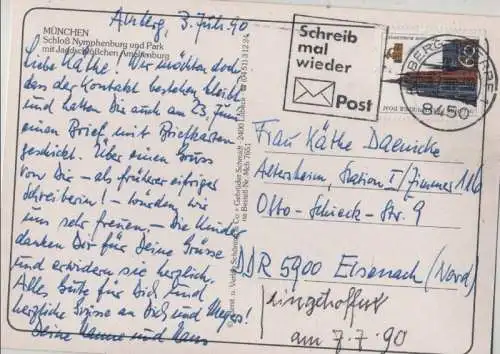 Amberg, 3. Juli 90
MÜNCHEN
Schloß Nymphenburg und Park
mit Jagdschlößchen Amalienburg
Liebe Käthe! Wir möchten doch,
daß der Kontakt bestehen bleibt
und hatten Dir auch am 23. Juni
einen Brief mit Briefkarten
geschickt. Über einen Gruß
von Dir - als früherer eifriger
Schreiberin! - würden wir
uns sehr freuen. - Die Kinder
danken Dir für Deine Grüsse
und erwidern sie herzlich.
Alles Gute für Dich und
herzliche Grüsse an Dich und Meyers!
Deine Hanne und Hans
Schreib
mal
wieder
Post
AMBERG
8450
Frau Käthe
Altersheim Station I/Zimmer 116
Otto-Schieck-Str. 9
DDR 5900 Eisenach (Nord)
eingetroffen
am 7.7.90